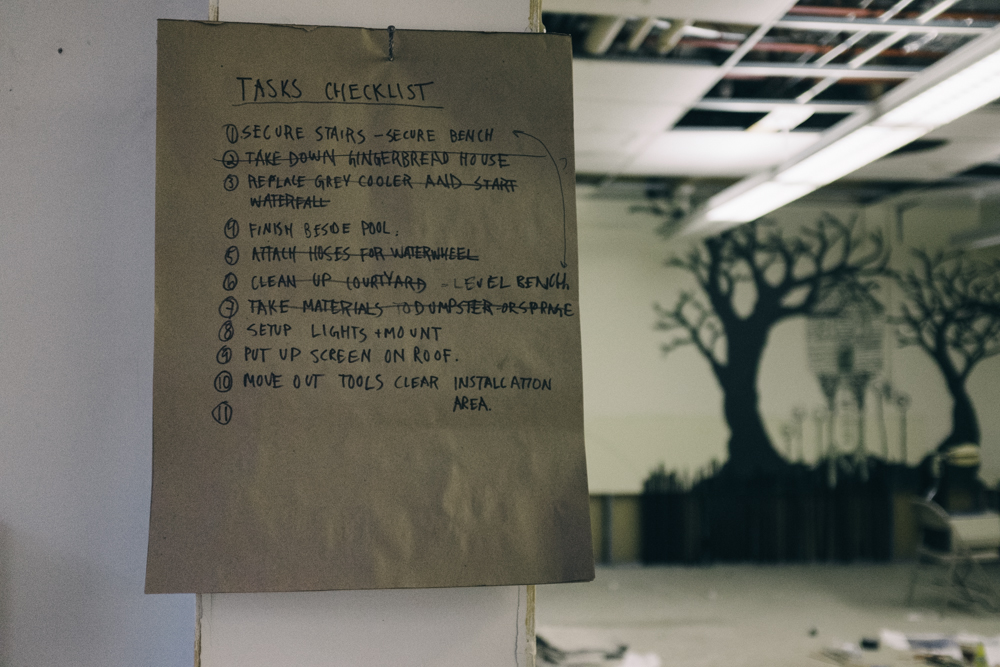 TASKS CHECKLIST
① SECURE STAIRS - SECURE BENCH
② TAKE DOWN GINGERBREAD HOUSE
③ REPLACE GREY COOLER AND START
WATERFALL
④ FINISH BESIDE POOL.
⑤ ATTACH HOSES FOR WATERWHEEL
⑥ CLEAN UP COURTYARD - LEVEL BENCH.
⑦ TAKE MATERIALS TO DUMPSTER OR
⑧ SETUP LIGHTS + MOUNT
⑨ PUT UP SCREEN ON ROOF.
⑩ MOVE OUT TOOLS CLEAR INSTALLATION
AREA.
⑪